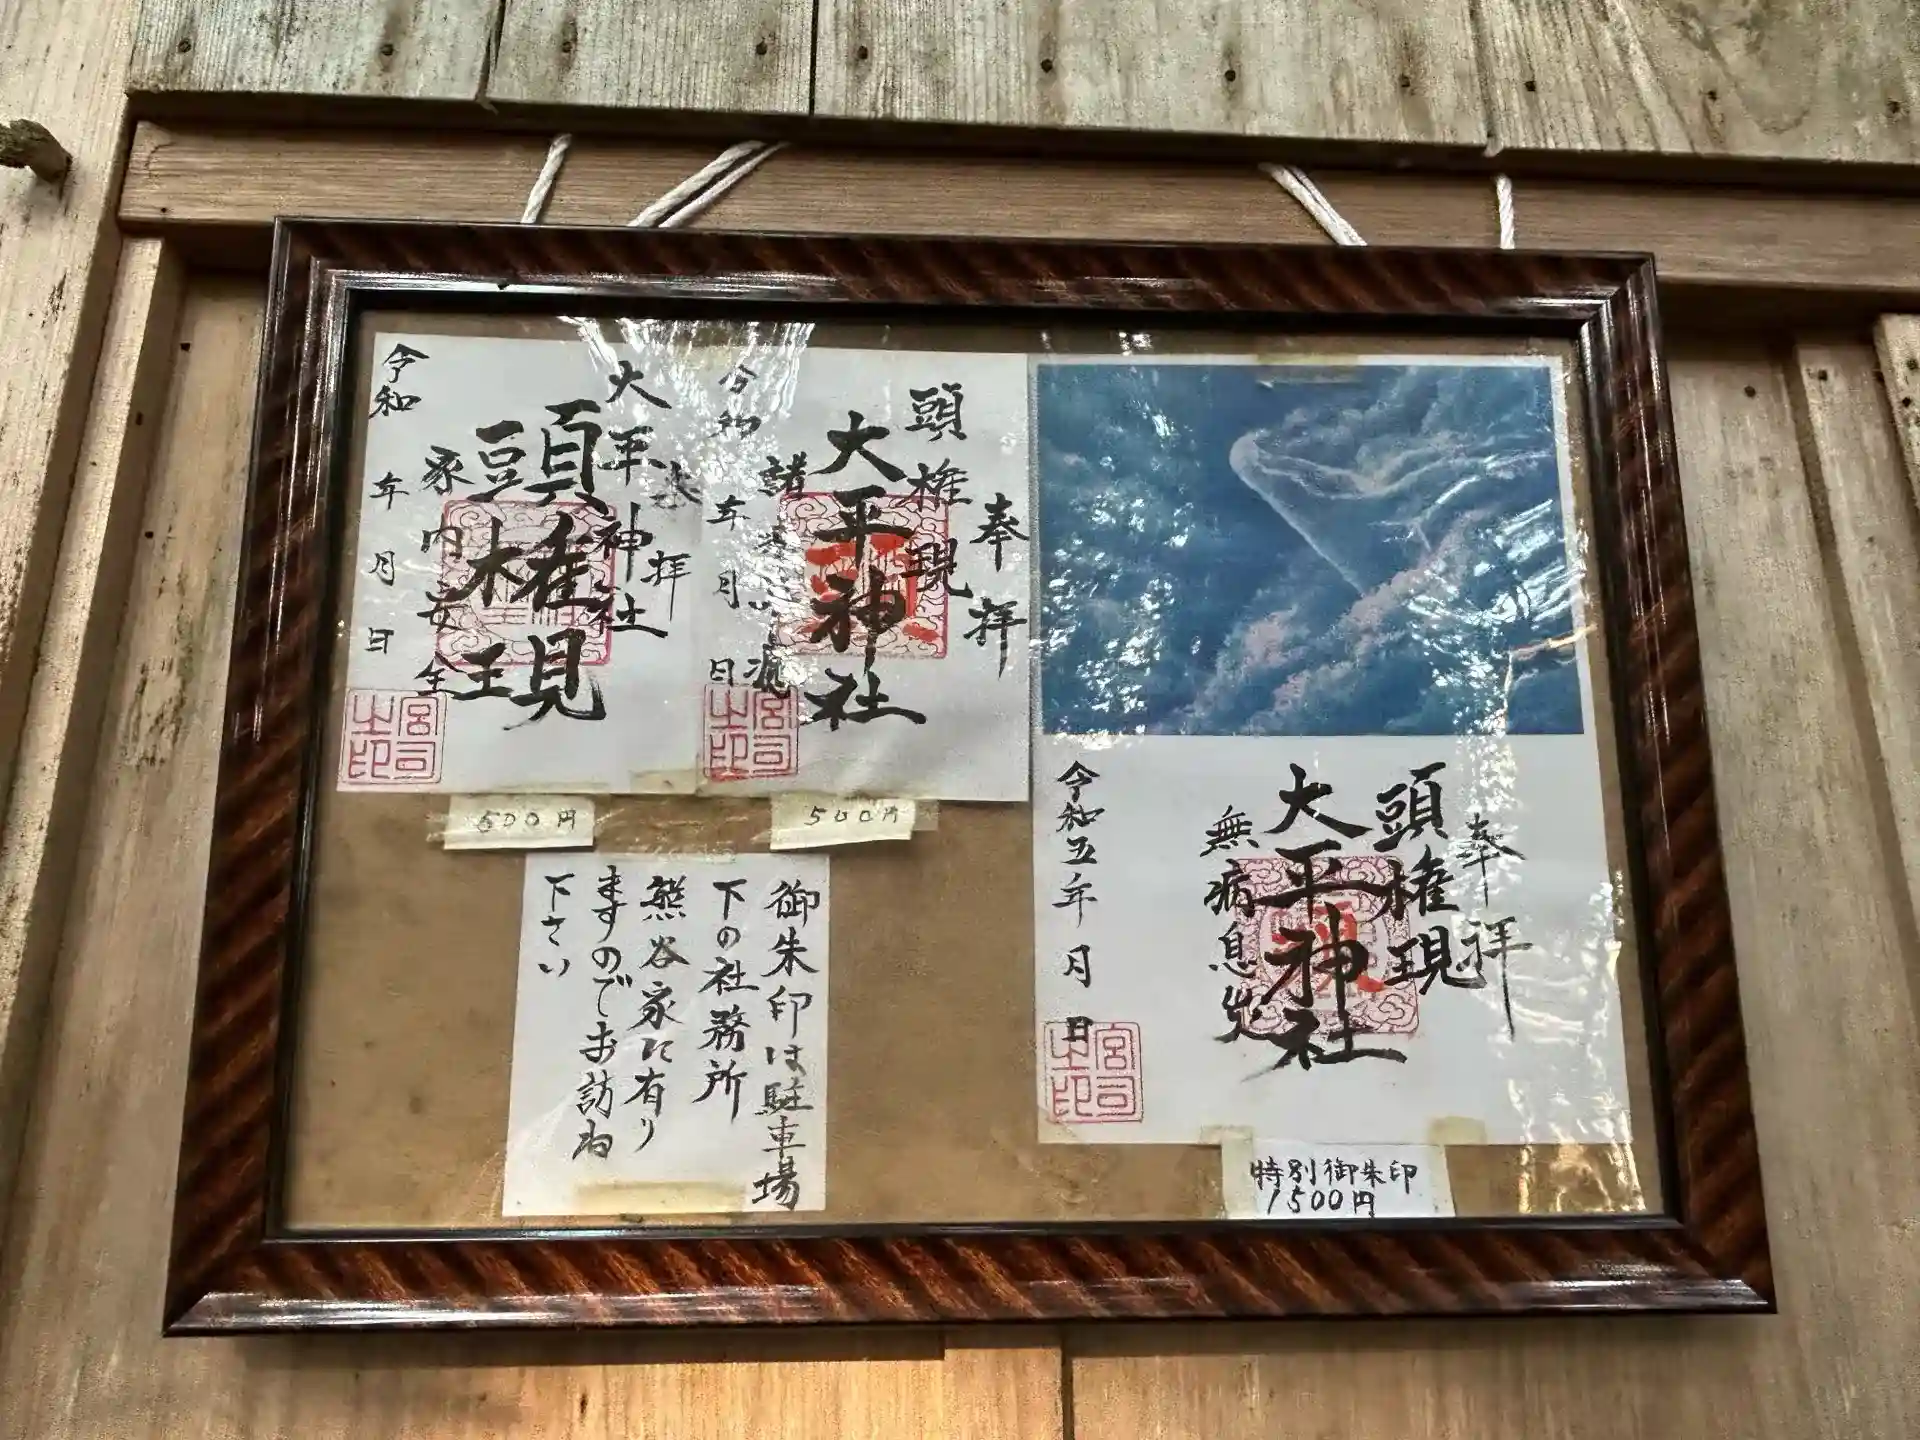 奉拝
大平神社
頭権現
家内安全
令和 年 月 日
宮司之印
500円
奉拝
頭権現
大平神社
令和 年 月 日
宮司之印
500円
御朱印は駐車場
下の社務所
熊谷家に有り
ますのでお訪ね
下さい
奉拝
頭権現
大平神社
無病息災
令和五年 月 日
宮司之印
特別御朱印
1500円